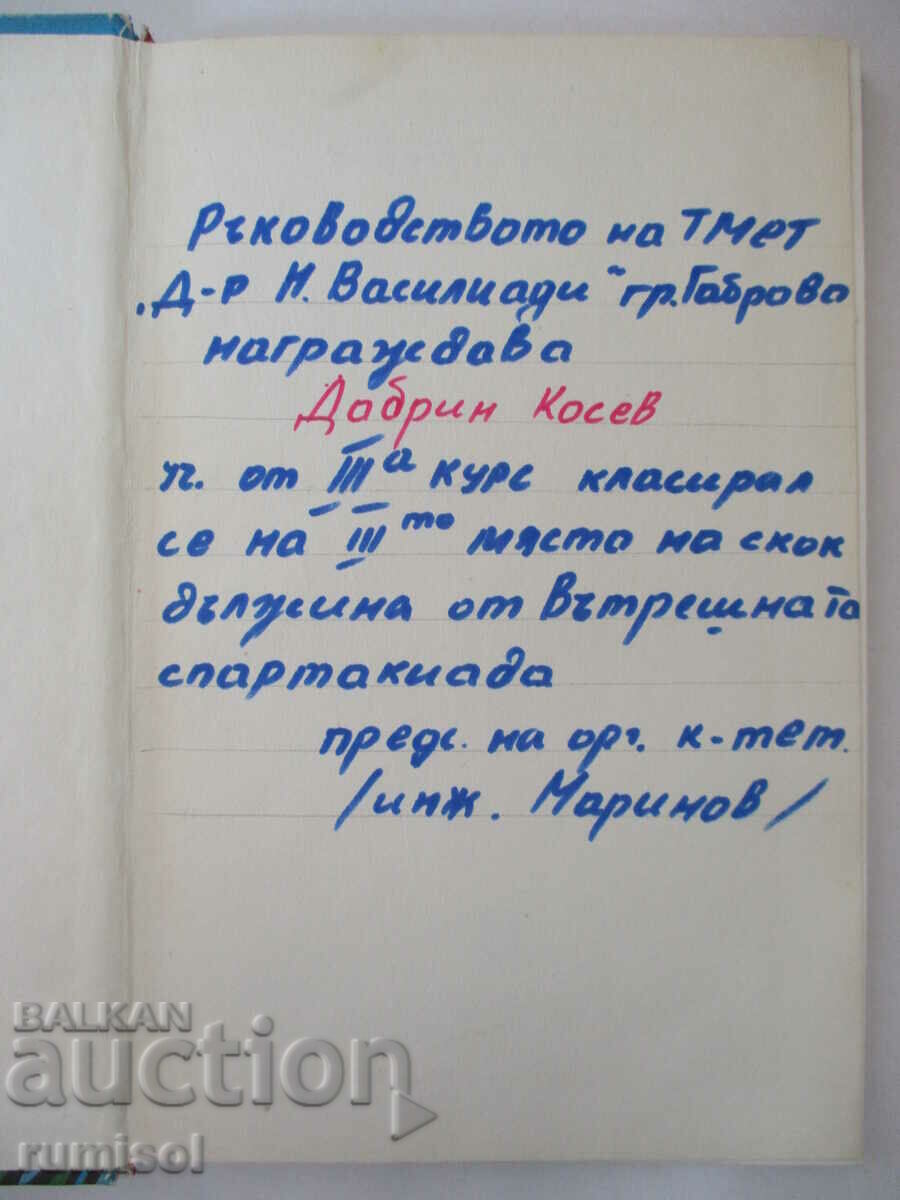 Ръководството на ТМЕТ
„Д-р Н. Василиади" гр. Габрово
награждава
Добрин Косев
п. от III а курс класирал
се на III то място на скок
дължина от Вътрешната
спартакиада
предс. на орг. к-тет.
/инж. Маринов/
BALKAN
auction
rumisol